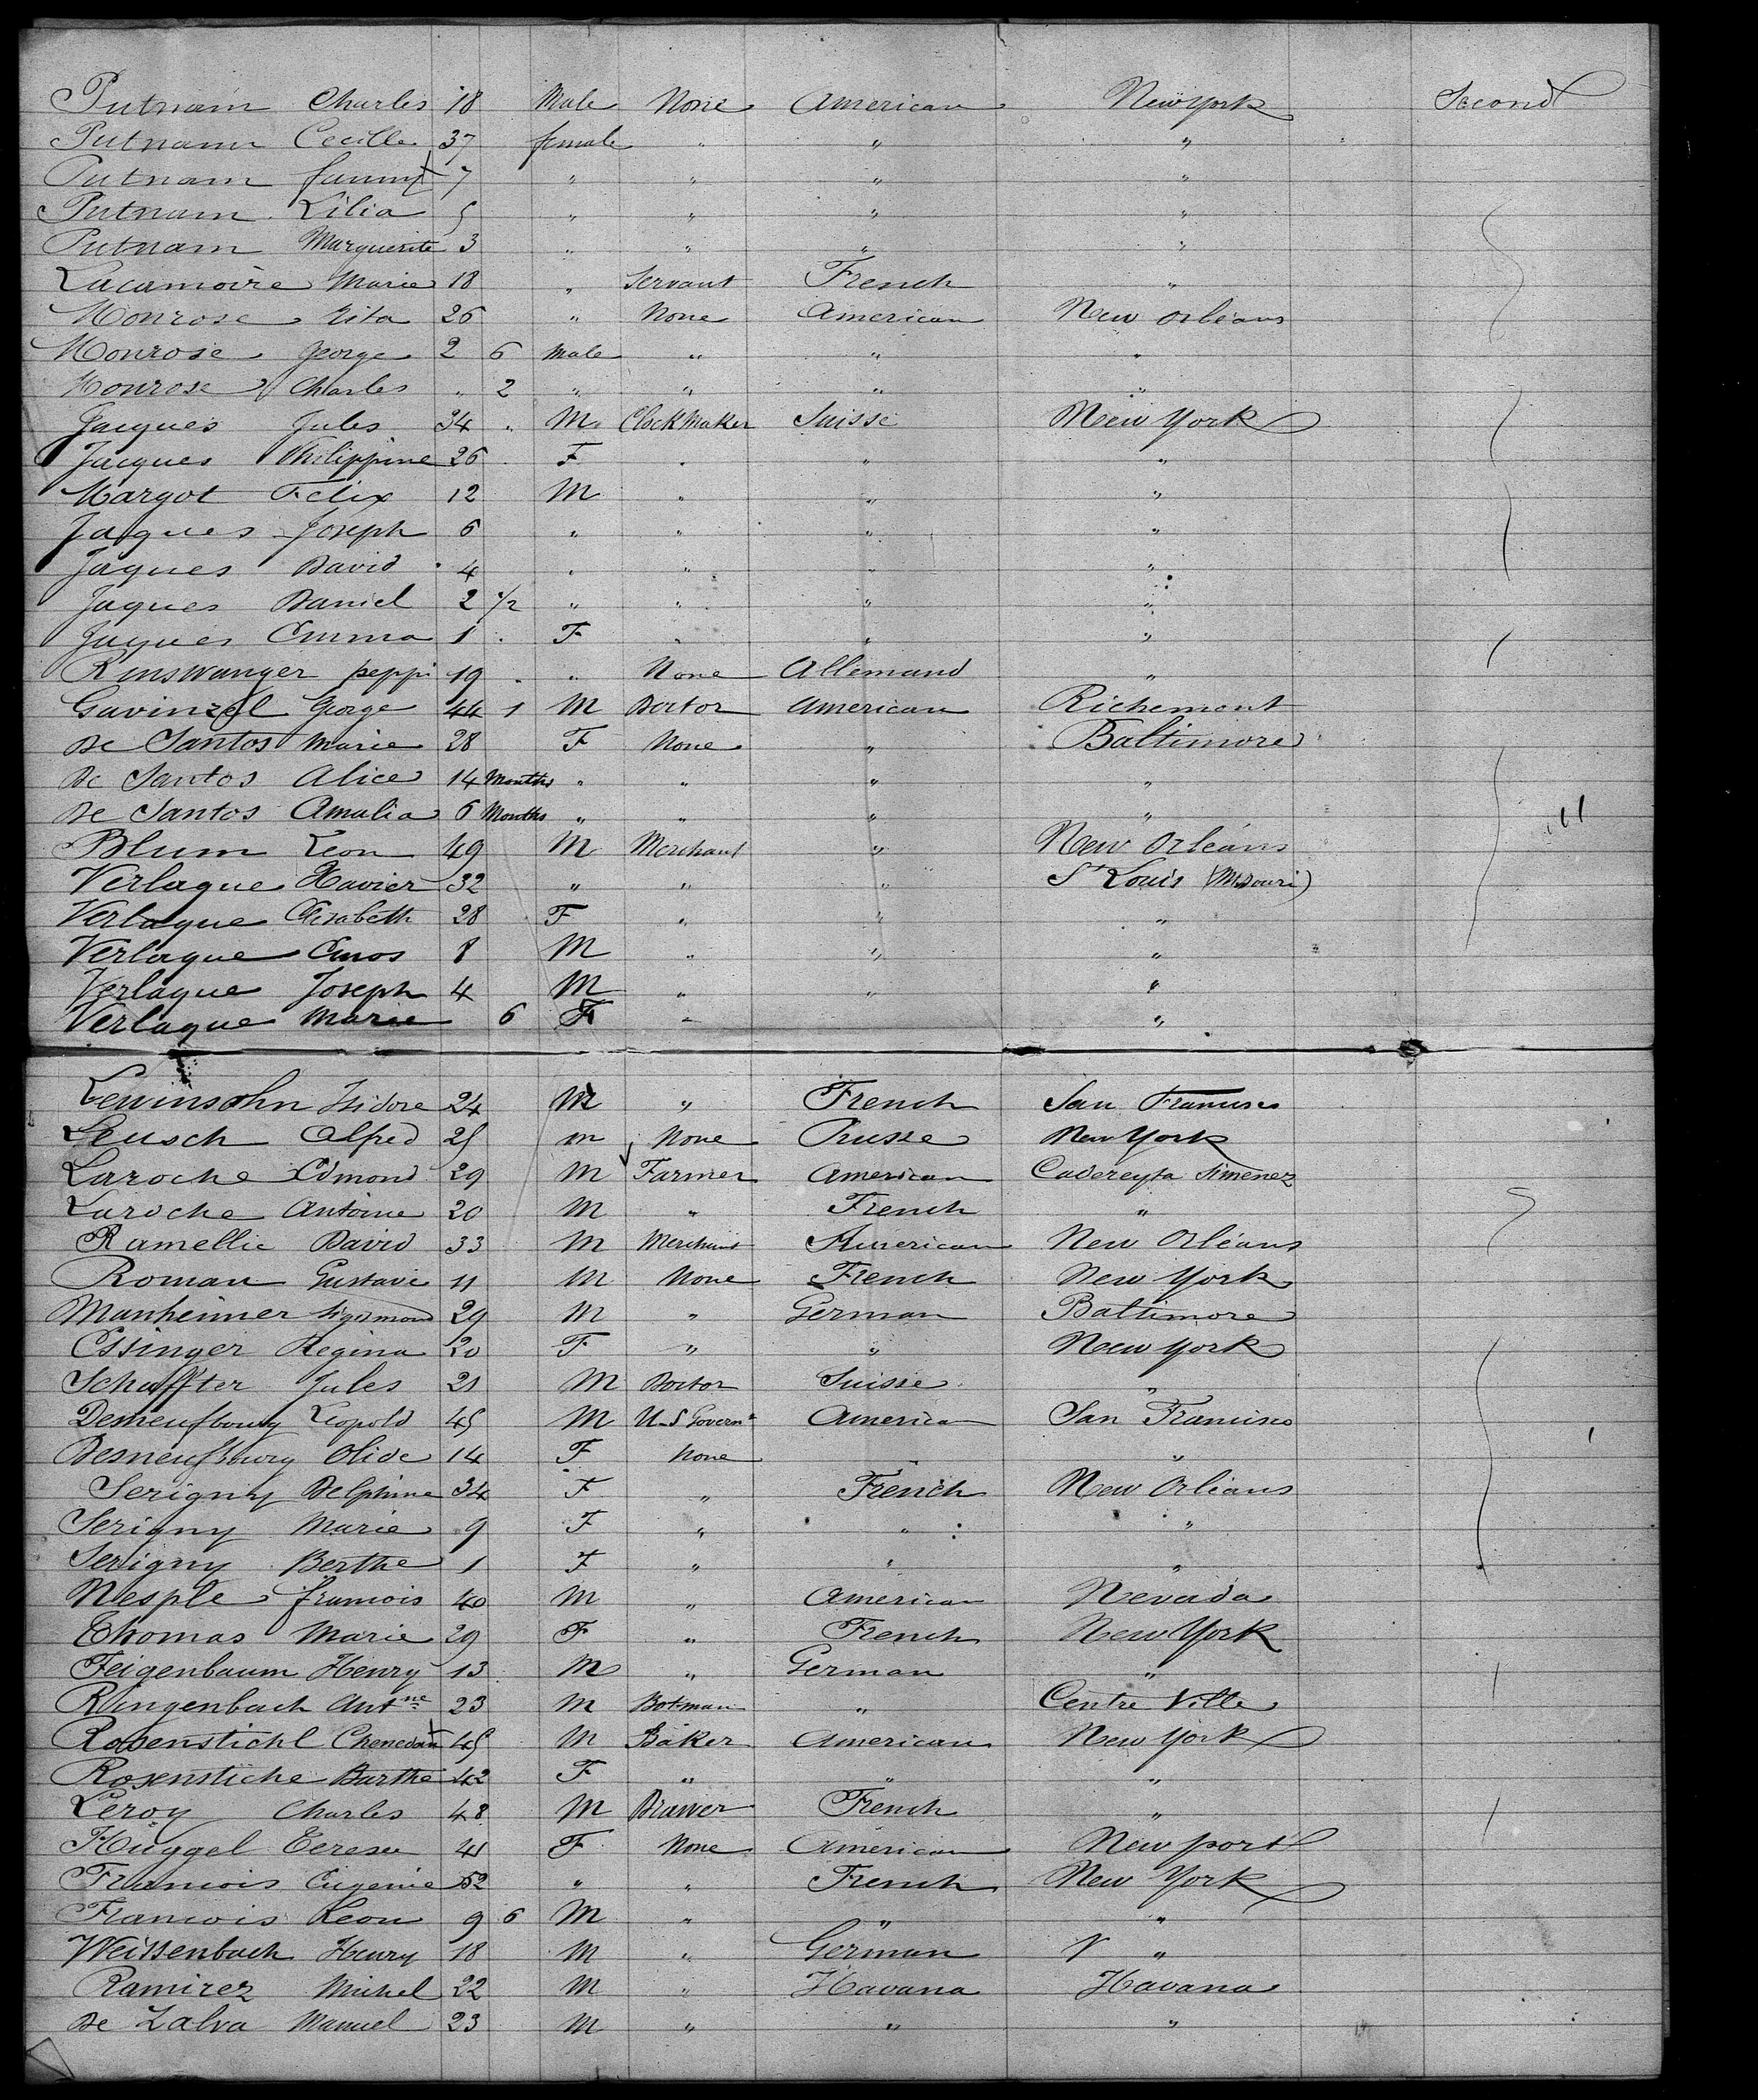 Putnam Charles 18 Male None American New York Second
Putnam Cecille 37 female " " "
Putnam fanny 7 " " " "
Putnam Lilia 5 " " " "
Putnam Marguerite 3 " " " "
Lacamoire Marie 18 " Servant French "
Monrose Rita 26 " None American New Orléans
Monrose George 2 6 Male " " "
Monrose Charles " 2 " " " "
Jacques Jules 34 " M. Clock Maker Suisse New York
Jacques Philippine 26 F " " "
Margot Felix 12 M " " "
Jaques Joseph 6 " " " "
Jaques David 4 " " " "
Jaques Daniel 2 1/2 " " " "
Jaques Emma 1 F " " "
Rinswanger peppi 19 " None Allemand "
Gavinzel George 44 1 M Doctor American Richemont
De Santos Marie 28 F None " Baltimore
De Santos Alice 14 Months " " " "
De Santos Amalia 6 Months " " " "
Blum Leon 49 M Merchant " New Orléans
Verlaque Xavier 32 " " " St Louis (Missouri)
Verlaque Elisabeth 28 F " " "
Verlaque Enos 8 M " " "
Verlaque Joseph 4 M " " "
Verlaque Marie 6 F " "
Lewinsohn Isidore 24 M " French San Francisco
Leusch Alfred 25 M None Prusse New York
Laroche Edmond 29 M Farmer American Cadereyta Jimenez
Laroche Antoine 20 M " French "
Ramellie David 33 M Merchant American New Orléans
Roman Gustave 11 M None French New York
Manheimer Sigismond 29 M " German Baltimore
Essinger Regina 20 F " " New York
Schaffter Jules 21 M Doctor Suisse "
Desneufbourg Leopold 45 M U-S Governt American San Francisco
Desneufbourg Olide 14 F None " "
Serigny Delphine 34 F " French New Orléans
Serigny Marie 9 F " " "
Serigny Berthe 1 F " " "
Nesple francois 40 M " American Nevada
Thomas Marie 29 F " French New York
Feigenbaum Henry 13 M " German "
Ringenbach Antne 23 M Botman " Centre Ville
Rosenstiehl 45 M Baker American New York
Rosenstiehe Barthe 42 F " " "
Leroy Charles 48 M Brawer French "
Huggel Teresa 41 F None American New port
Francois Eugenie 52 " " French New York
Francois Leon 9 6 M " " "
Weissenbach Henry 18 M " German "
Ramirez Michel 22 M " Havana Havana
De Zalva Manuel 23 M " " "